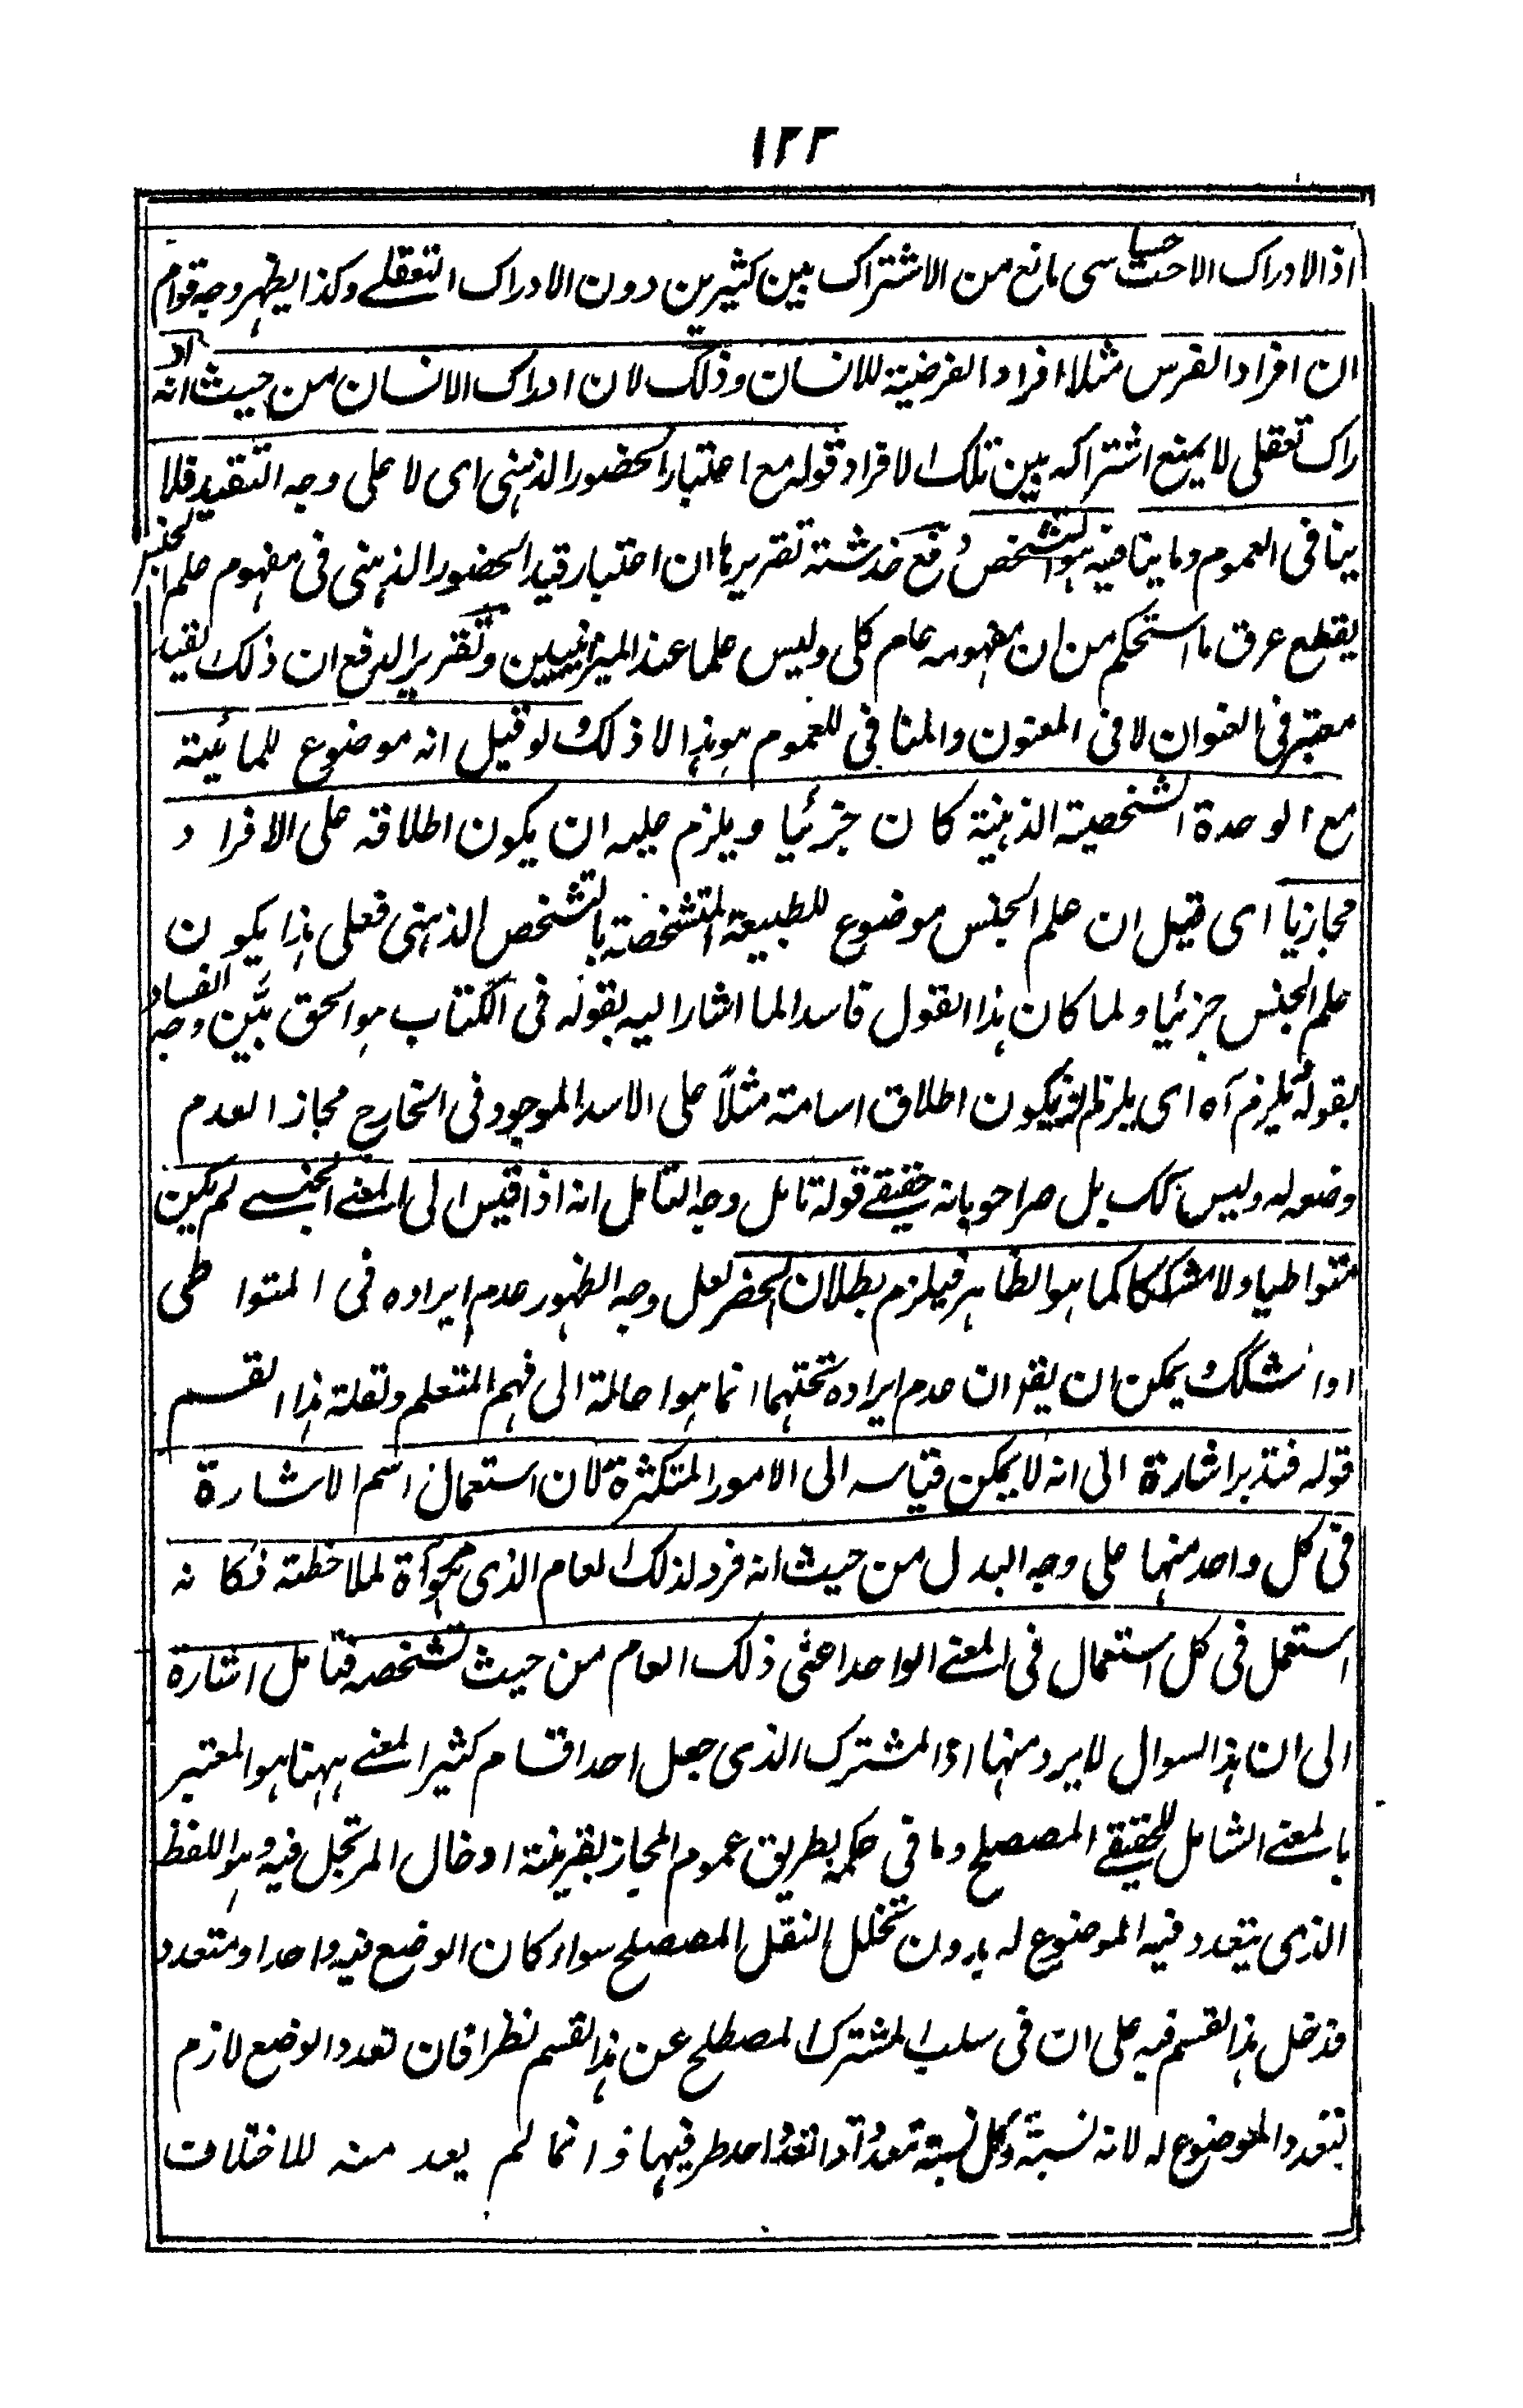 ١٢٢
اذ الادراك الاحساسى مانع من الاشتراك بين كثيرين دون الادراك التعقلے وكذا يظهر وجه قوام
ان افراد الفرس مثلا افراد الفرضية للانسان وذلك لان ادراك الانسان من حيث انه اد
راك تعقلى لا يمنع اشتراكه بين تلك الافراد قوله مع اعتبار الحضور الذهنى اى لا على وجه التقييد فلا
ينافى العموم وما ينافيه هو التشخص دفع خدشة تقريرها ان اعتبار قيد الحضور الذهنى فى مفهوم علم الجنس
يقطع عرق ما استحكم من ان مفهومه عام كلى وليس علما عند الميزانيين وتقرير الدفع ان ذلك القيد
معتبر فى العنوان لا فى المعنون والمنافى للعموم هو هذا لا ذلك لو قيل انه موضوع للمائية
مع الوحدة الشخصية الذهنية كان جزئيا ويلزم عليه ان يكون اطلاقه على الافراد
مجازيا اى قيل ان علم الجنس موضوع للطبيعة المتشخصة بالتشخص الذهنى فعلى هذا يكون
علم الجنس جزئيا ولما كان هذا القول فاسدا لما اشار اليه بقوله فى الكتاب هو الحق بيّن وجه الفساد
بقوله يلزم آه اى يلزم ان يكون اطلاق اسامة مثلاً على الاسد الموجود فى الخارج مجازا لعدم
وضعه له وليس كك بل صرحوا بانه حقيقے قوله تامل وجه التامل انه اذا قيس الى المعنے الجنسے لم يكن
متواطيا ولا مشككا كما هو الظاهر فيلزم بطلان الحصر لعل وجه الظهور عدم ايراده فى المتواطى
او المشكك يمكن ان يقر ان عدم ايراده تحتهما انما هو احالة الى فهم المتعلم ولقلة هذا القسم
قوله فتدبر اشارة الى انه لا يمكن قياسه الى الامور المتكثرة لان استعمال اسم الاشارة
فى كل واحد منها على وجه البدل من حيث انه فرد لذلك العام الذى هو مرآة لملاحظته فكانه
استعمل فى كل استعمال فى المعنے الواحد اعنى ذلك العام من حيث تشخصه فتامل اشارة
الى ان هذا السوال لا يرد منها اذ المشترك الذى جعل احد اقسام كثير المعنے ههنا هو المعتبر
بالمعنے الشامل للحقيقے المصطلح وما فى حكمه بطريق عموم المجاز بقرينة ادخال المرتجل فيه وهو اللفظ
الذى يتعدد فيه الموضوع له بدون تخلل النقل المصطلح سواء كان الوضع فيه واحدا او متعددا
فدخل هذا القسم فيه على ان فى سلب المشترك المصطلح عن هذا القسم نظرا فان تعدد الوضع لازم
لتعدد الموضوع له لانه نسبة وكل نسبة تعددت اذا تعدد احد طرفيها فانما لم يعد منه للاختلاف